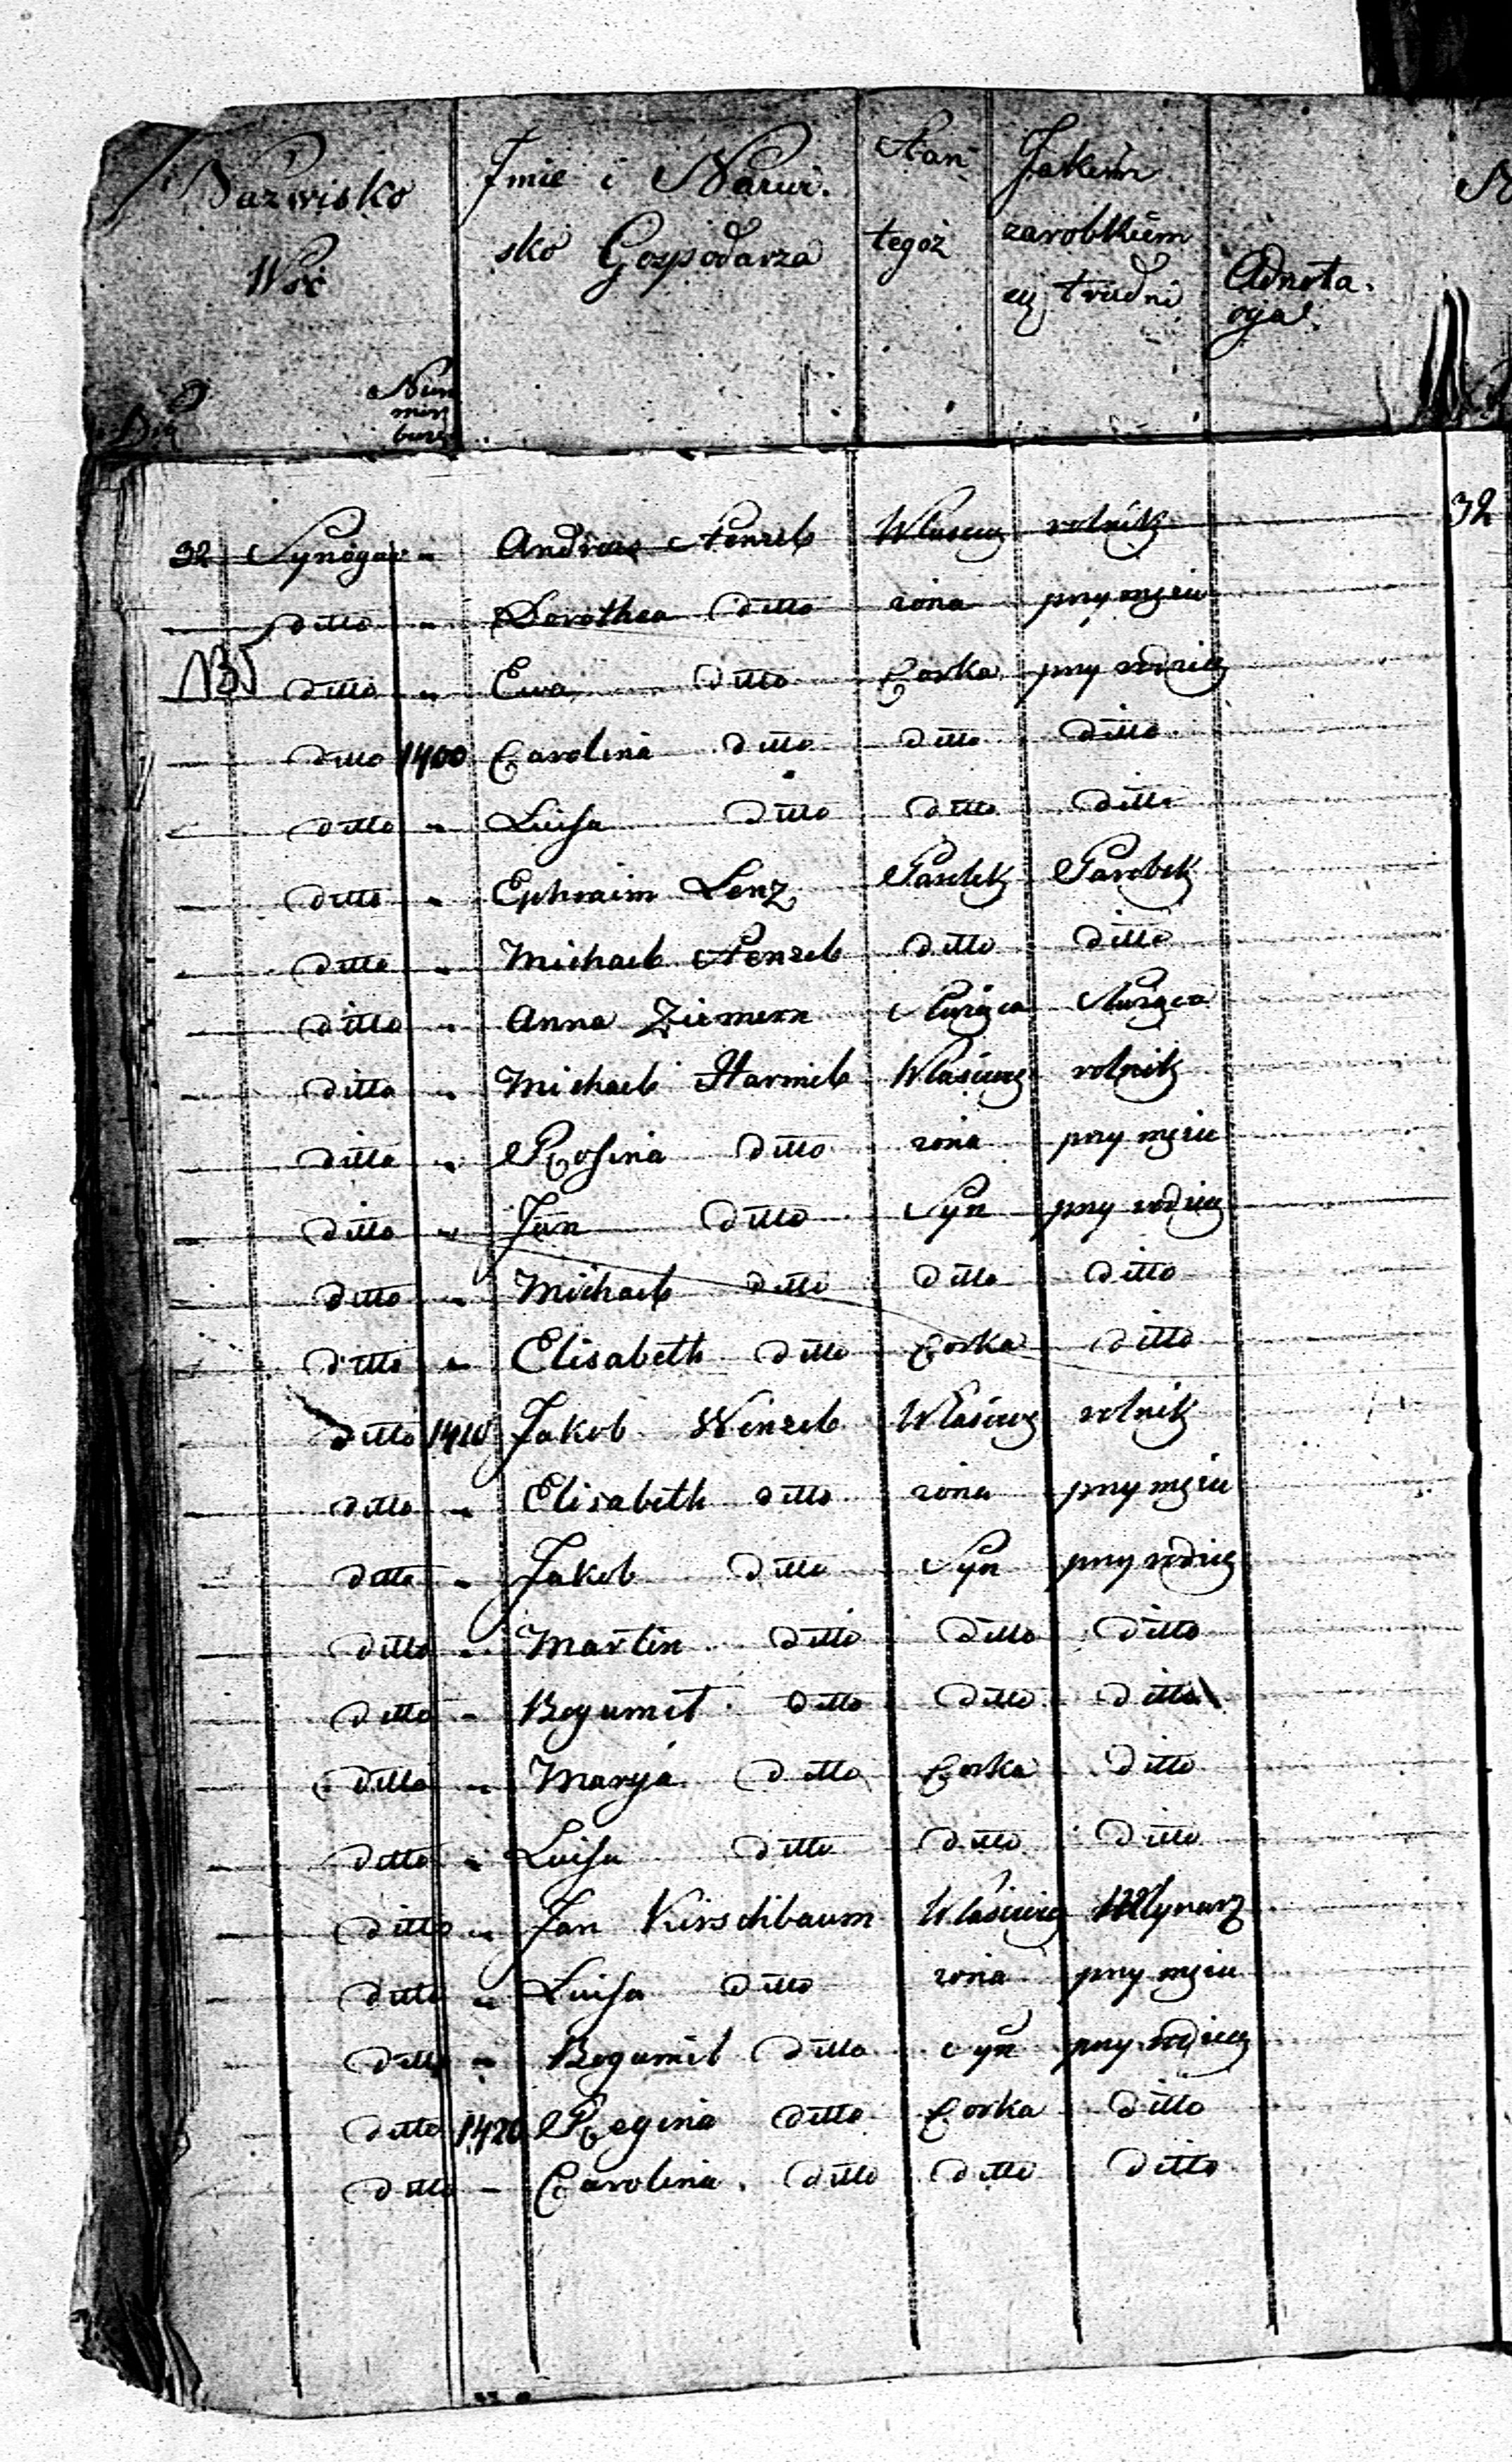 Nazwisko Wsi
Nummer buza
Imie i Nazwisko Gospodarza
Stan tegoż
Jakim zarobkiem się trudni
Adnotacja
32 Synogac " Andreas Stenzel Własciciel rolnik 32
ditto " Dorothea ditto zona przy mężu
ditto " Ewa ditto Corka przy rodzic
ditto 1400 Carolina ditto ditto ditto
ditto " Luisa ditto ditto ditto
ditto " Ephraim Lenz Parobek Parobek
ditto " Michael Stenzel ditto ditto
ditto " Anna Ziemern Służąca Służąca
ditto " Michael Harmel Właściciel rolnik
ditto " Rosina ditto zona przy mężu
ditto " Jan ditto Syn przy rodzic
ditto " Michael ditto ditto ditto
ditto " Elisabeth ditto Corka ditto
ditto 1410 Jakob Wenzel Właściciel rolnik
ditto " Elisabeth ditto zona przy mężu
ditto " Jakob ditto Syn przy rodzic
ditto " Martin ditto ditto ditto
ditto " Bogumił ditto ditto ditto
ditto " Marya ditto Corka ditto
ditto " Luisa ditto ditto ditto
ditto " Jan Kirschbaum Właściciel Młynarz
ditto " Luisa ditto zona przy mężu
ditto " Bogumił ditto Syn przy rodzic
ditto 1420 Regina ditto Corka ditto
ditto " Carolina ditto ditto ditto